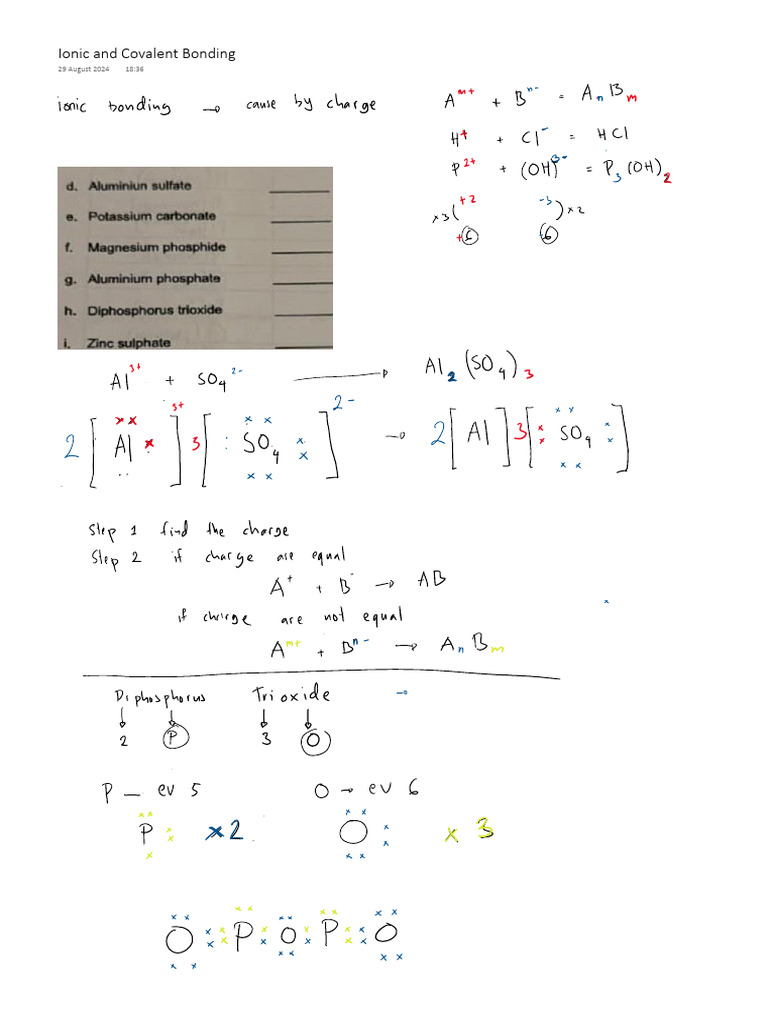 Ionic and Covalent Bonding
29 August 2024 18:36
ionic bonding → cause by charge
A^m+ + B^n- = A_n B_m
H^+ + Cl^- = HCl
P^2+ + (OH)^3- = P_3(OH)_2
×3( +2 -3 )×2
+6 -6
d. Aluminiun sulfate
e. Potassium carbonate
f. Magnesium phosphide
g. Aluminium phosphate
h. Diphosphorus trioxide
i. Zinc sulphate
Al^3+ + SO_4^2- → Al_2(SO_4)_3
2[Al]^3+ 3[SO_4]^2- → 2[Al] 3[SO_4]
Step 1 find the charge
Step 2 if charge are equal
A^+ + B^- → AB
if charge are not equal
A^m+ + B^n- → A_n B_m
Diphosphorus Trioxide →
2 P 3 O
P – ev 5 O → ev 6
P ×2 O ×3
O P O P O